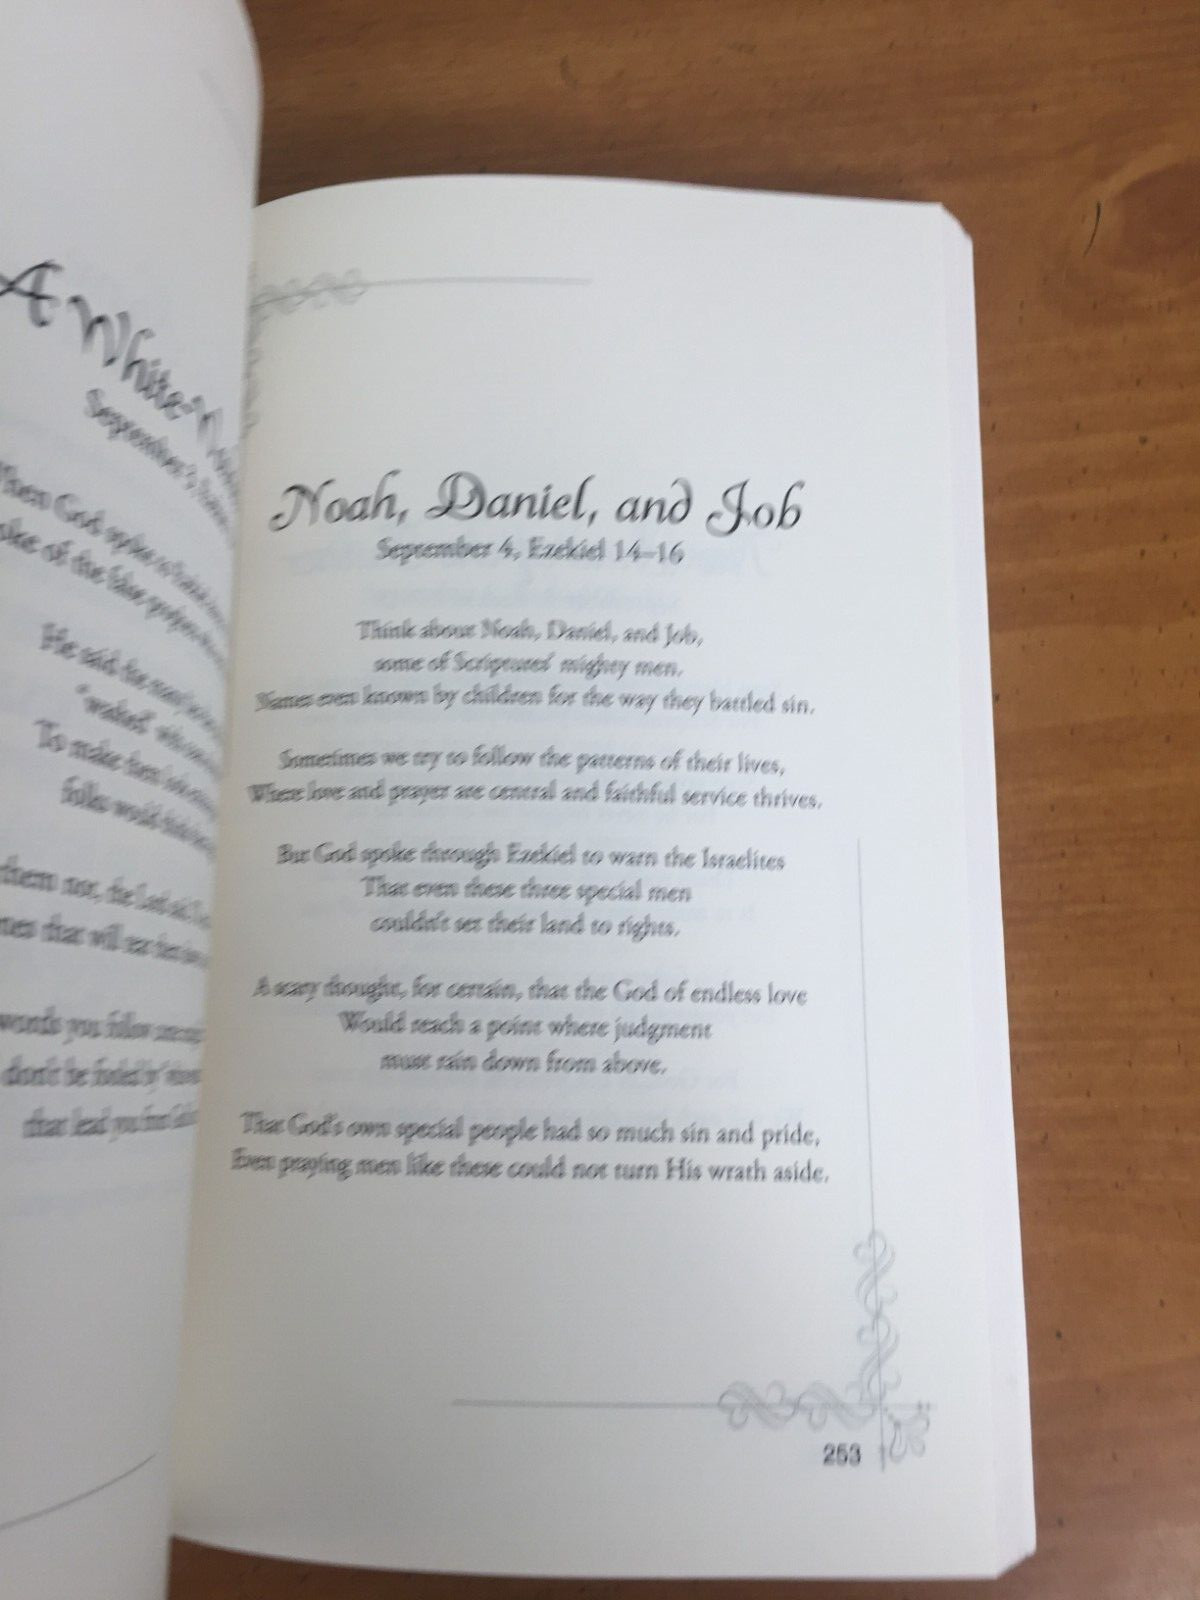 A White
September 3,
When God spoke to
spoke of the false
He said he
"
To make them
folks would
them not, the Lord
men that will
words you follow
don't be fooled by
that lead you from
Noah, Daniel, and Job
September 4, Ezekiel 14–16
Think about Noah, Daniel, and Job,
some of Scriptures' mighty men.
Names even known by children for the way they battled sin.
Sometimes we try to follow the patterns of their lives,
Where love and prayer are central and faithful service thrives.
But God spoke through Ezekiel to warn the Israelites
That even these three special men
couldn't set their land to rights.
A scary thought, for certain, that the God of endless love
Would reach a point where judgment
must rain down from above.
That God's own special people had so much sin and pride,
Even praying men like these could not turn His wrath aside.
253